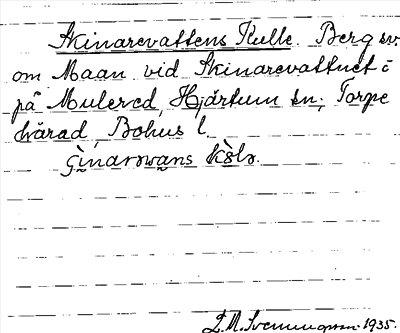 Skinarevattens Kulle. Berg sv.
om Maan vid Skinarevattnet i
på Mulered, Hjärtum sn; Torpe
härad, Bohus l.
L.M. Svenungsson 1935.